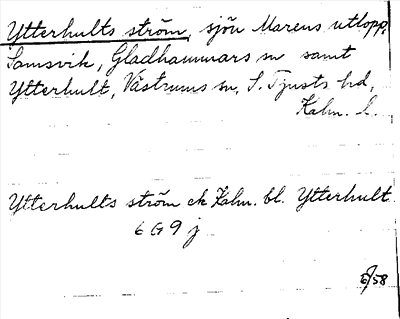 Ytterhults ström, sjön Marens utlopp,
Samsvik, Gladhammars sn samt
Ytterhult, Västrums sn, S. Tjusts hd,
Kalm. l.
Ytterhults ström ek Kalm. bl. Ytterhult
6 G 9 j
6/58